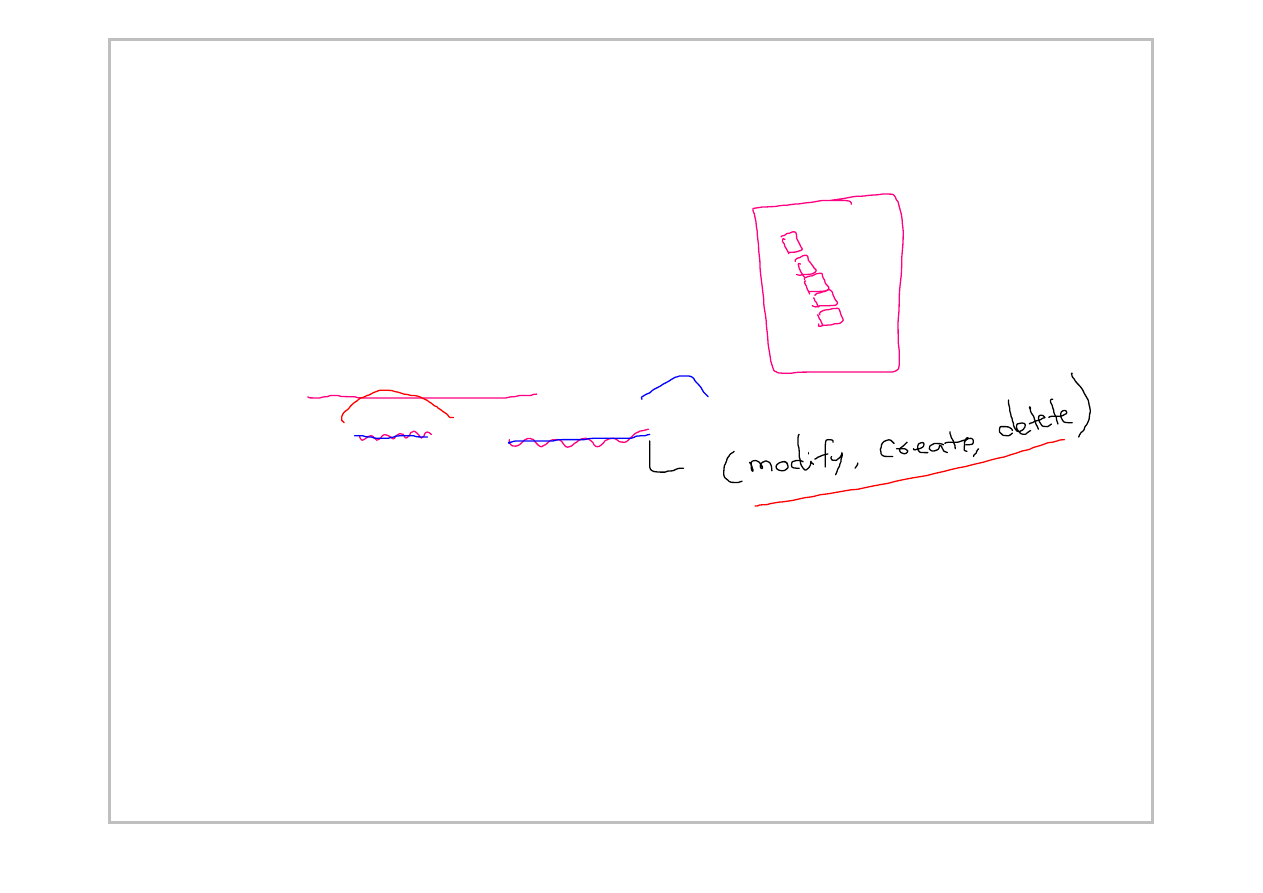 (modify, create, delete)